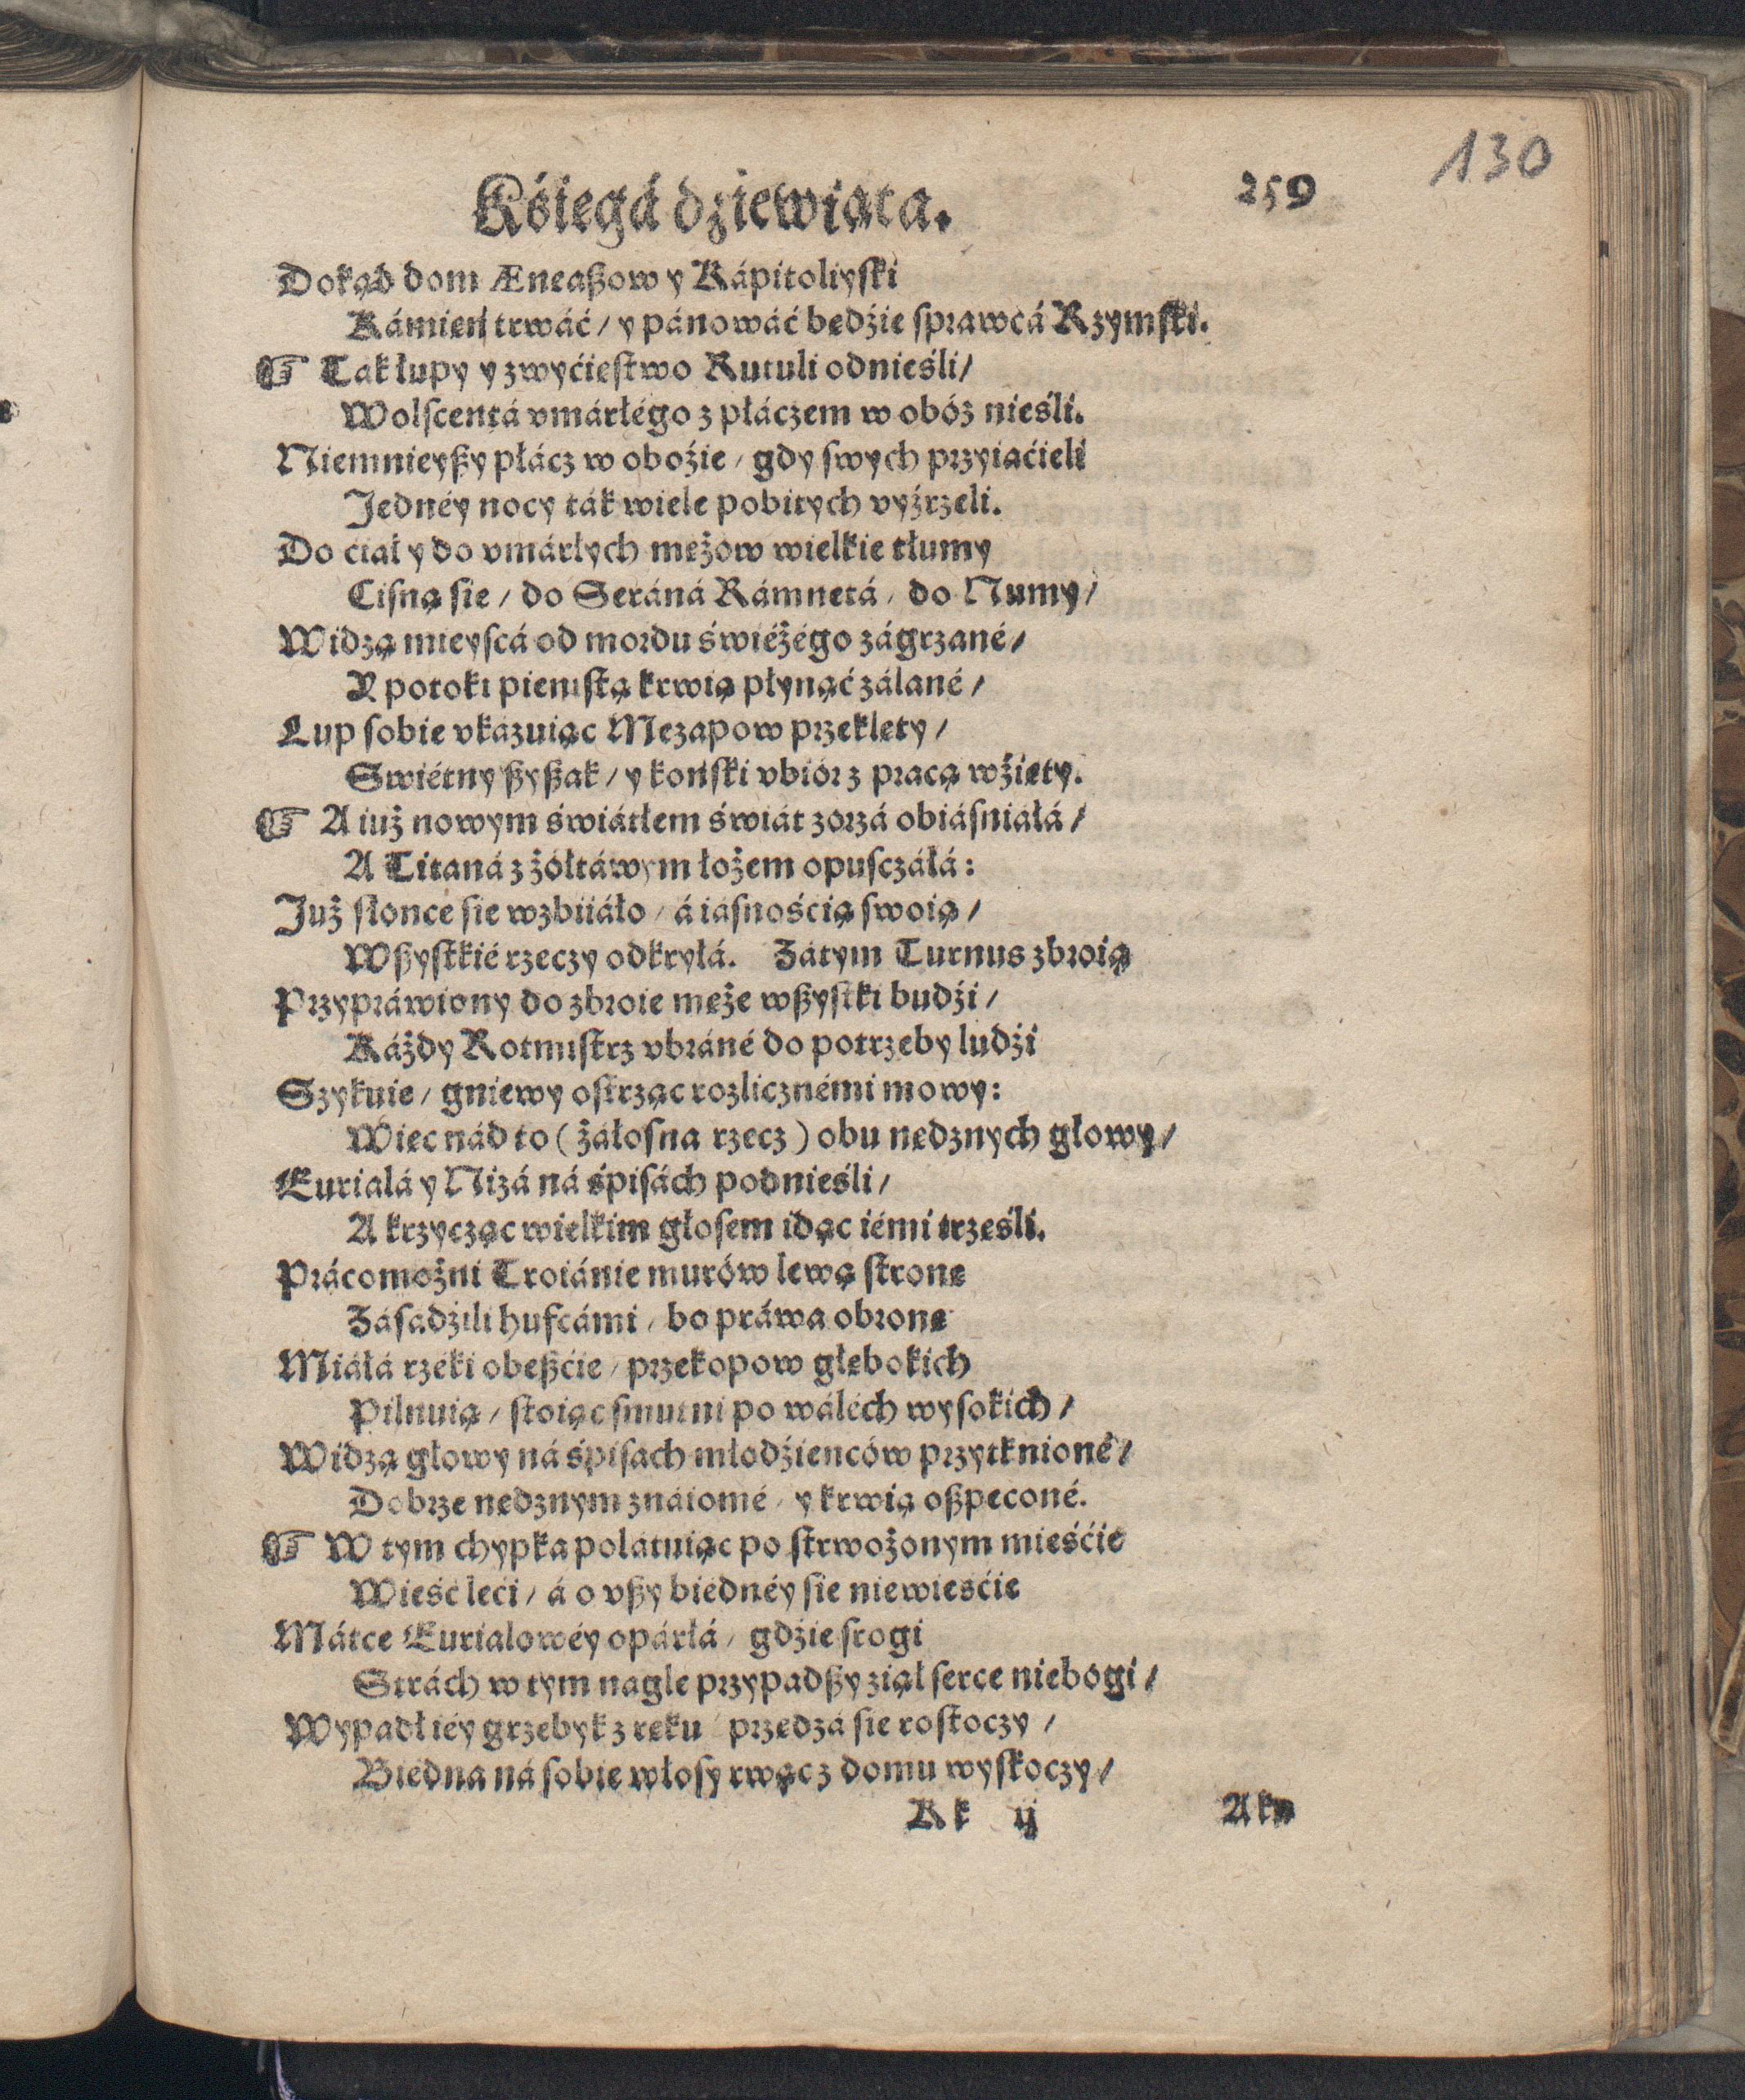 130
Kśięgá dźiewiąta. 259
Dokąd dom Æneaßow y Kápitoliyſki
Kámień trwáć / y pánowáć będźie ſprawcá Rzymſki.
☞ Tak łupy y zwyćięſtwo Rutuli odnieśli /
Wolſcentá vmárłégo z płáczem w obóz nieśli.
Niemnieyßy płácz w oboźie / gdy ſwych przyiaćieli
Jednéy nocy ták wiele pobitych vyźrzeli.
Do ciał y do vmárłych mężow wielkie tłumy
Ciſną ſie / do Seráná Rámnetá / do Numy /
Widzą mieyſcá od mordu świéżégo zágrzané /
Y potoki pieniſtą krwią płynąć zálané /
Lup ſobie vkazuiąc Mezapow przeklęty /
Swiétny ßyßak / y końſki vbiór z pracą wźięty.
☞ A iuż nowym świátłem świát zorzá obiáſniáłá /
A Titaná z żółtáwym łożem opuſczáłá:
Już ſłońce ſie wzbiiáło / á iáſnośćią ſwoią /
Wßyſtkié rzeczy odkryłá. Zátym Turnus zbroią
Przypráwiony do zbroie męże wßyſtki budźi /
Káżdy Rotmiſtrz vbráné do potrzeby ludźi
Szykuie / gniewy oſtrząc rozlicznémi mowy:
Więc nád to (żáłoſna rzecz) obu nędznych głowy /
Eurialá y Nizá ná śpiſách podnieśli /
A krzycząc wielkim głoſem idąc iémi trzęśli.
Prácomożni Troiánie murów lewą ſtronę
Záſadźili hufcámi / bo práwa obronę
Miáłá rzéki obeßćie / przekopow głębokich
Pilnuią / ſtoiąc ſmutni po wáléch wyſokich /
Widzą głowy ná śpiſach młodźienców przytknioné /
Dobrze nędznym znáiomé / y krwią oßpeconé.
☞ W tym chypka polátuiąc po ſtrwożonym mieśćie
Wieść leći / á o vßy biédnéy ſie niewieśćie
Mátce Eurialowéy opárłá / gdźie ſrogi
Strách w tym nagle przypadßy ziął ſerce niebogi /
Wypadł iéy grzebyk z ręku / przędzá ſie roſtoczy /
Biedna ná ſobie włoſy rwąc z domu wyſkoczy /
Kk ij Aku